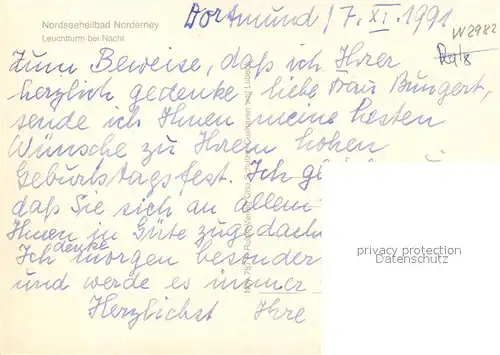 Nordseeheilbad Norderney
Leuchtturm bei Nacht
Dortmund 17. XI. 1991
W2982
Zum Beweise, daß ich Ihrer
herzlich gedenke, liebe Frau Bungert,
sende ich Ihnen meine besten
Wünsche zu Ihrem hohen
Geburtstagsfest. Ich
daß Sie sich an allem
Ihnen in Güte zugedach
Ich denke morgen besonder
und werde es immer
Herzlichst Ihre
privacy protection
Datenschutz